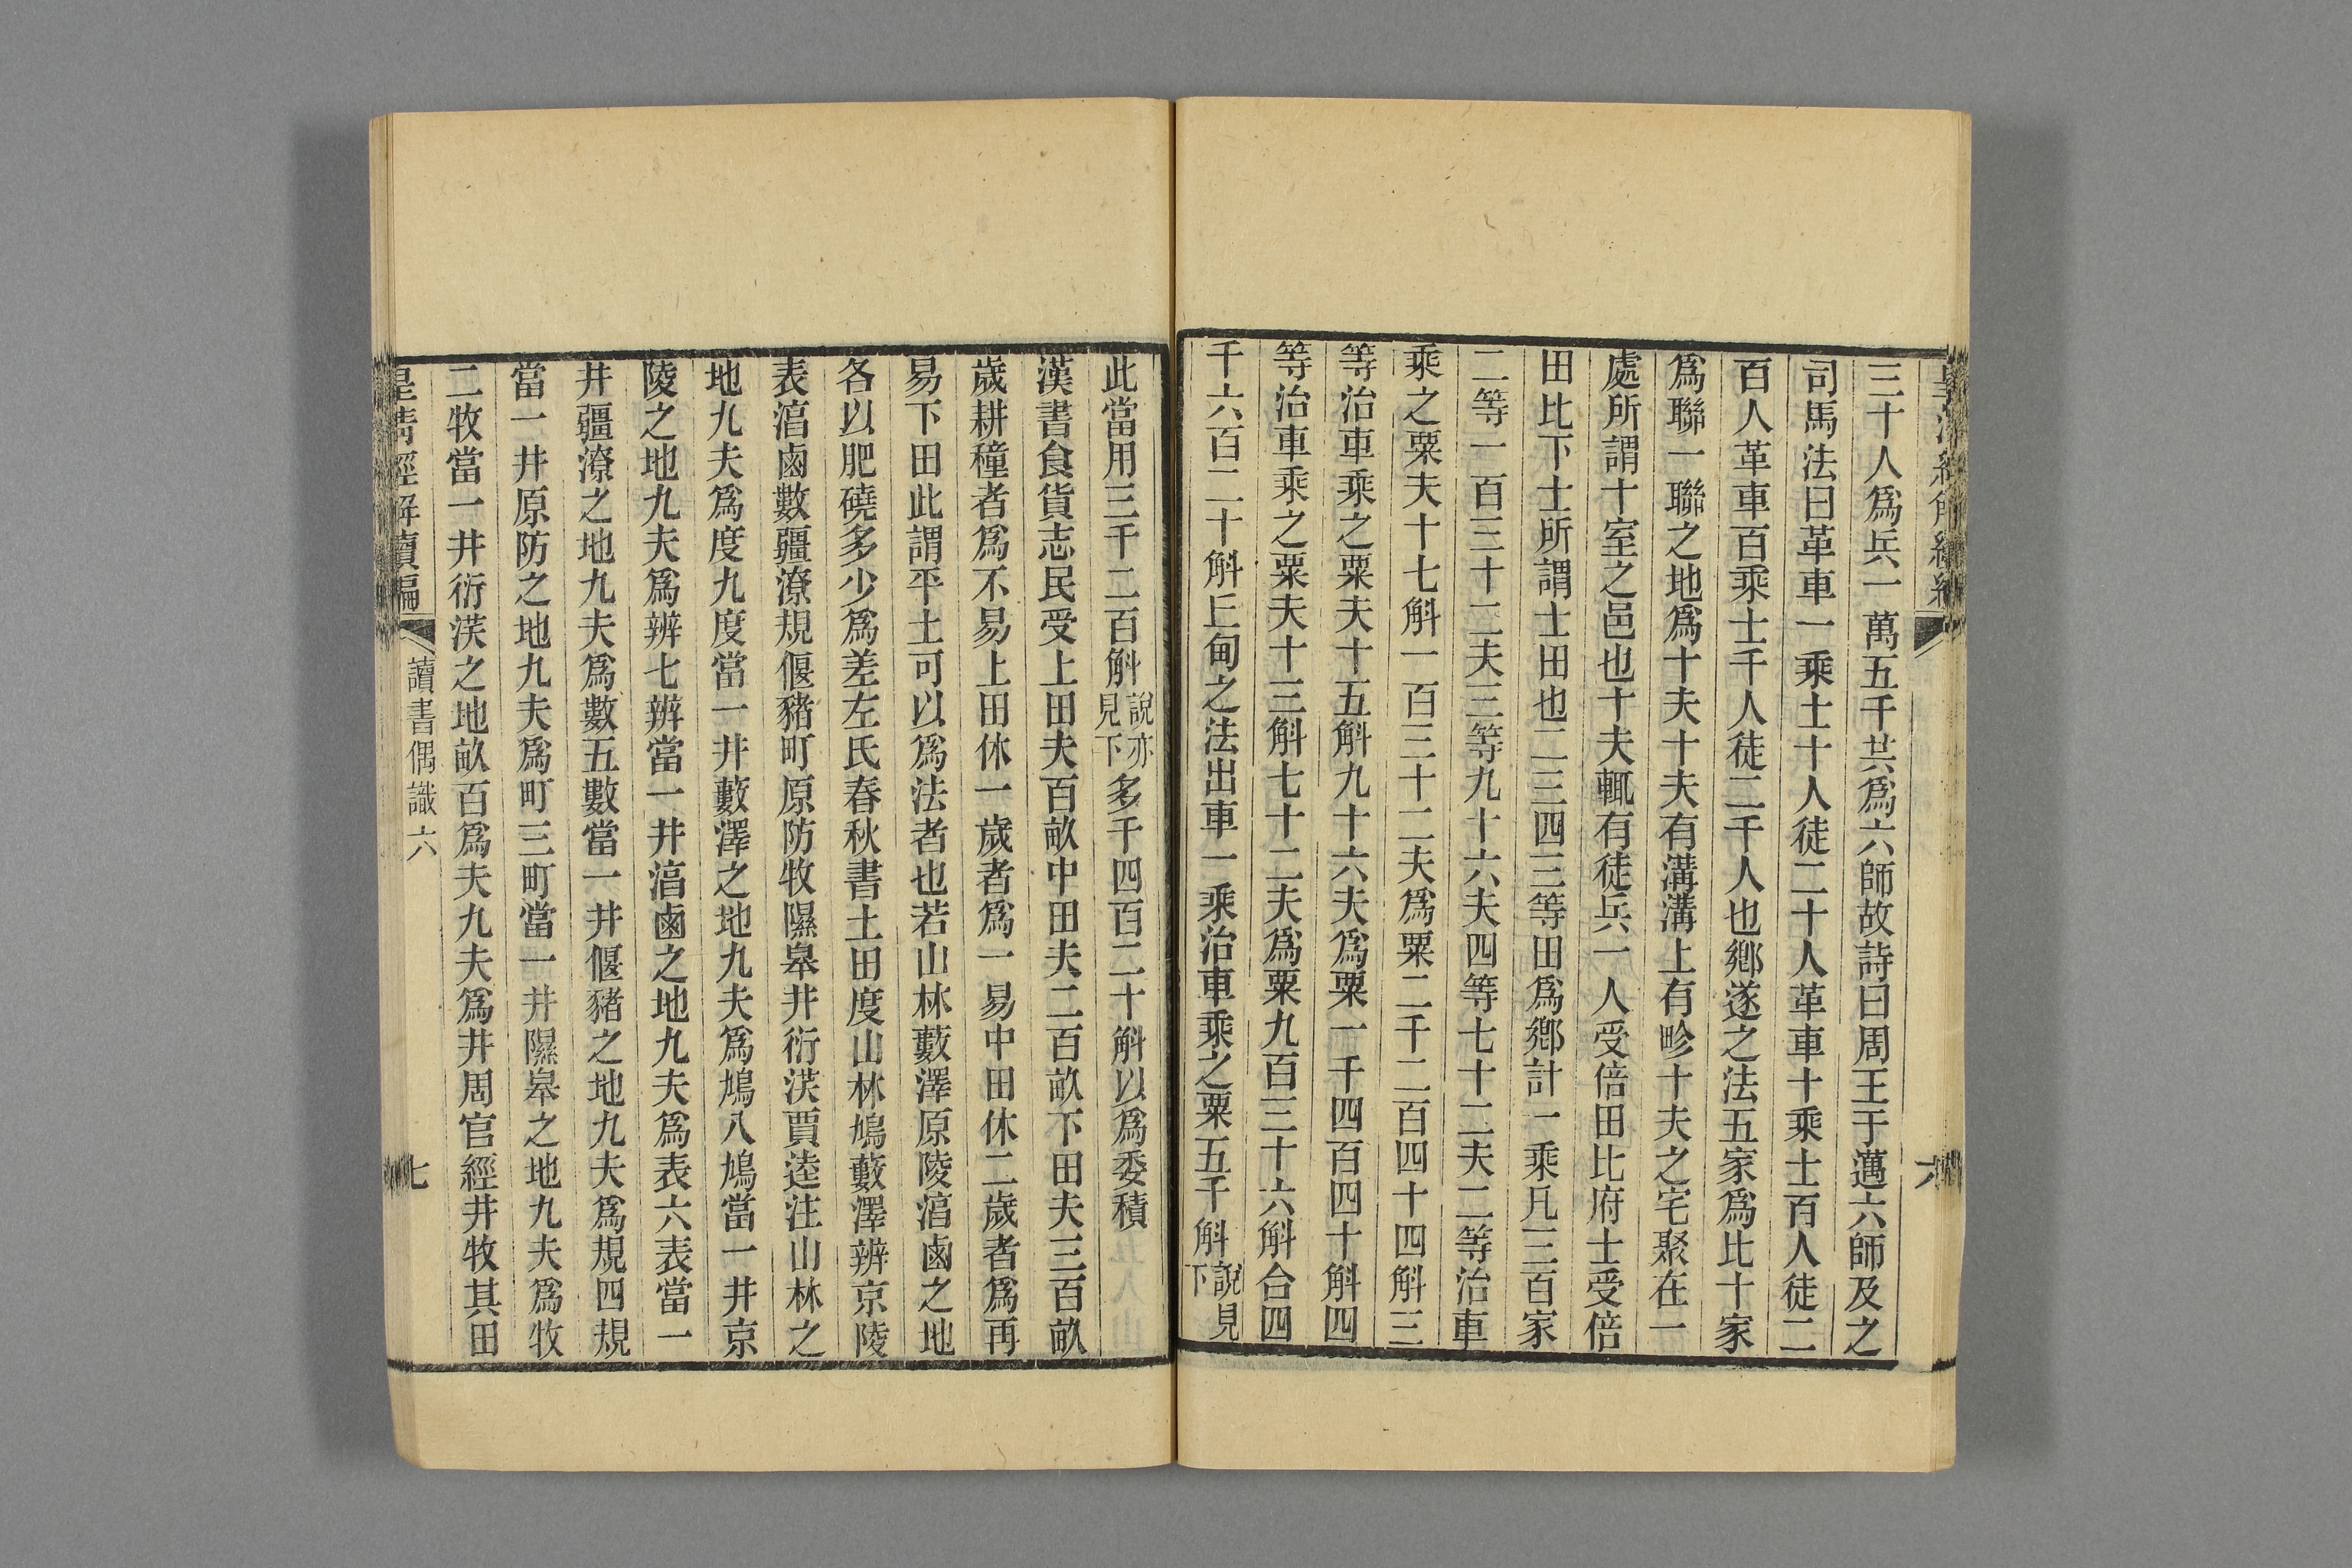 三十人爲兵一萬五千共爲六師故詩曰周王于邁六師及之
司馬法曰革車一乘士十人徒二十人革車十乘士百人徒二
百人革車百乘士千人徒二千人也鄉遂之法五家爲比十家
爲聯一聯之地爲十夫十夫有溝溝上有畛十夫之宅聚在一
處所謂十室之邑也十夫輒有徒兵一人受倍田比府士受倍
田比下士所謂士田也二三四三等田爲鄉計一乘凡三百家
二等一百三十二夫三等九十六夫四等七十二夫二等治車
乘之粟夫十七斛一百三十二夫爲粟二千二百四十四斛三
等治車乘之粟夫十五斛九十六夫爲粟一千四百四十斛四
等治車乘之粟夫十三斛七十二夫爲粟九百三十六斛合四
千六百二十斛丘甸之法出車一乘治車乘之粟五千斛說見下
此當用三千二百斛說亦見下多千四百二十斛以爲委積
漢書食貨志民受上田夫百畝中田夫二百畝下田夫三百畝
歲耕種者爲不易上田休一歲者爲一易中田休二歲者爲再
易下田此謂平土可以爲法者也若山林藪澤原陵淳鹵之地
各以肥磽多少爲差左氏春秋書土田度山林鳩藪澤辨京陵
表淳鹵數疆潦規偃豬町原防牧隰皋井衍沃賈逵注山林之
地九夫爲度九度當一井藪澤之地九夫爲鳩八鳩當一井京
陵之地九夫爲辨七辨當一井淳鹵之地九夫爲表六表當一
井疆潦之地九夫爲數五數當一井偃豬之地九夫爲規四規
當一井原防之地九夫爲町三町當一井隰皋之地九夫爲牧
二牧當一井衍沃之地畝百爲夫九夫爲井周官經井牧其田
皇淸經解續編
讀書偶識六
七